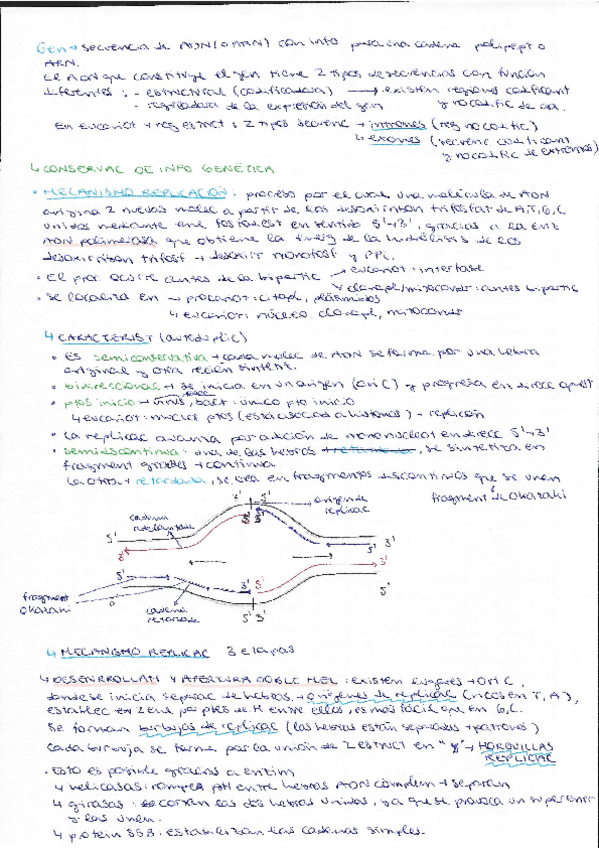 Gen → secuencia de ADN (o ARN) con info para una cadena polipept o
ARN.
El ADN que constituye el gen tiene 2 tipos de secuencias con función
diferentes : - estructural (codificadora) → existen regiones codificant
- reguladora de la expresión del gen y no codific de aa.
En eucariot → reg estruct : 2 tipos secuenc → intrones (reg no codific)
↳ exones (secuenc codificant
y no codific de extremos)
↳ CONSERVAC DE INFO GENÉTICA
• MECANISMO REPLICACIÓN : proceso por el cual una molécula de ADN
origina 2 nuevas molec a partir de los desoxirribon trifosfat de A,T,G,C
unidos mediante enl fosfodiest en sentido 5'→3', gracias a la enz
ADN polimerasa que obtiene la energ de la hidrólisis de los
desoxirribon trifosf → desoxirr monofosf y PPi.
• El proc ocurre antes de la bipartic → eucariot : interfase
↘ cloropl/mitocondr : antes bipartic
• Se localiza en → procariot : citopl, plásmidos
↳ eucariot : núcleo, cloropl, mitocondr
↳ CARACTERIST (autoduplic)
• Es semiconservativa → cada molec de ADN se forma por una hebra
original y otra recién sintetiz.
• bidireccional → se inicia en un origen (ori C) y progresa en direcc opuest
• ptos inicio → virus, bact : único pto inicio
↳ eucariot : muchos ptos (está asociada a histonas) → replicón
• La replicac avanza por adición de mononucleot en direcc 5'→3'
• semidiscontinua : una de las hebras , se sintetiza en
fragment grandes → continua
La otra → retardada, se crea en fragmentos discontinuos que se unen
fragment de Okazaki
3' 5' → origen de
replicac
cadena
5' 3'
3' 5'
5' 3' 5' 3'
fragment
Okazaki
cadena
retardada
5' 3' 5'
↳ MECANISMO REPLICAC 3 etapas
↳ DESENRROLLAM Y APERTURA DOBLE HEL : existen → ori C,
donde se inicia separac de hebras → orígenes de replicac (ricos en T, A),
establec en 2 enl por ptes de H entre ellos, es más fácil que en G,C.
Se forman burbujas de replicac (las hebras están separadas → patrones)
Cada burbuja se forma por la unión de 2 estruct en "y" → HORQUILLAS
REPLICAC
• Esto es posible gracias a enzim
↳ helicasas : rompen pH entre hebras ADN complem → separan
↳ girasas : cortan las dos hebras unidas, ya que se provoca un superenr
y las unen.
↳ protein SSB : estabilizan las cadenas simples.